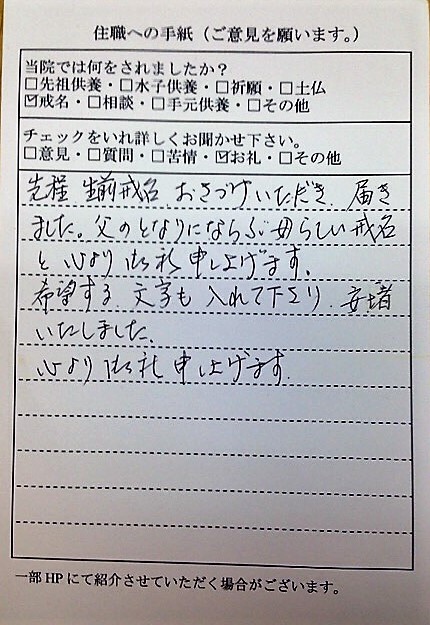 住職への手紙（ご意見を願います。）
当院では何をされましたか？
□先祖供養・□水子供養・□祈願・□土仏
☑戒名・□相談・□手元供養・□その他
チェックをいれ詳しくお聞かせ下さい。
□意見・□質問・□苦情・☑お礼・□その他
先程 生前戒名 おさづけいただき、届き
ました。父のとなりにならぶ 母らしい 戒名
と 心より 御礼 申し上げます。
希望する 文字も 入れて下さり、安堵
いたしました。
心より 御礼 申し上げます
一部 HP にて紹介させていただく場合がございます。